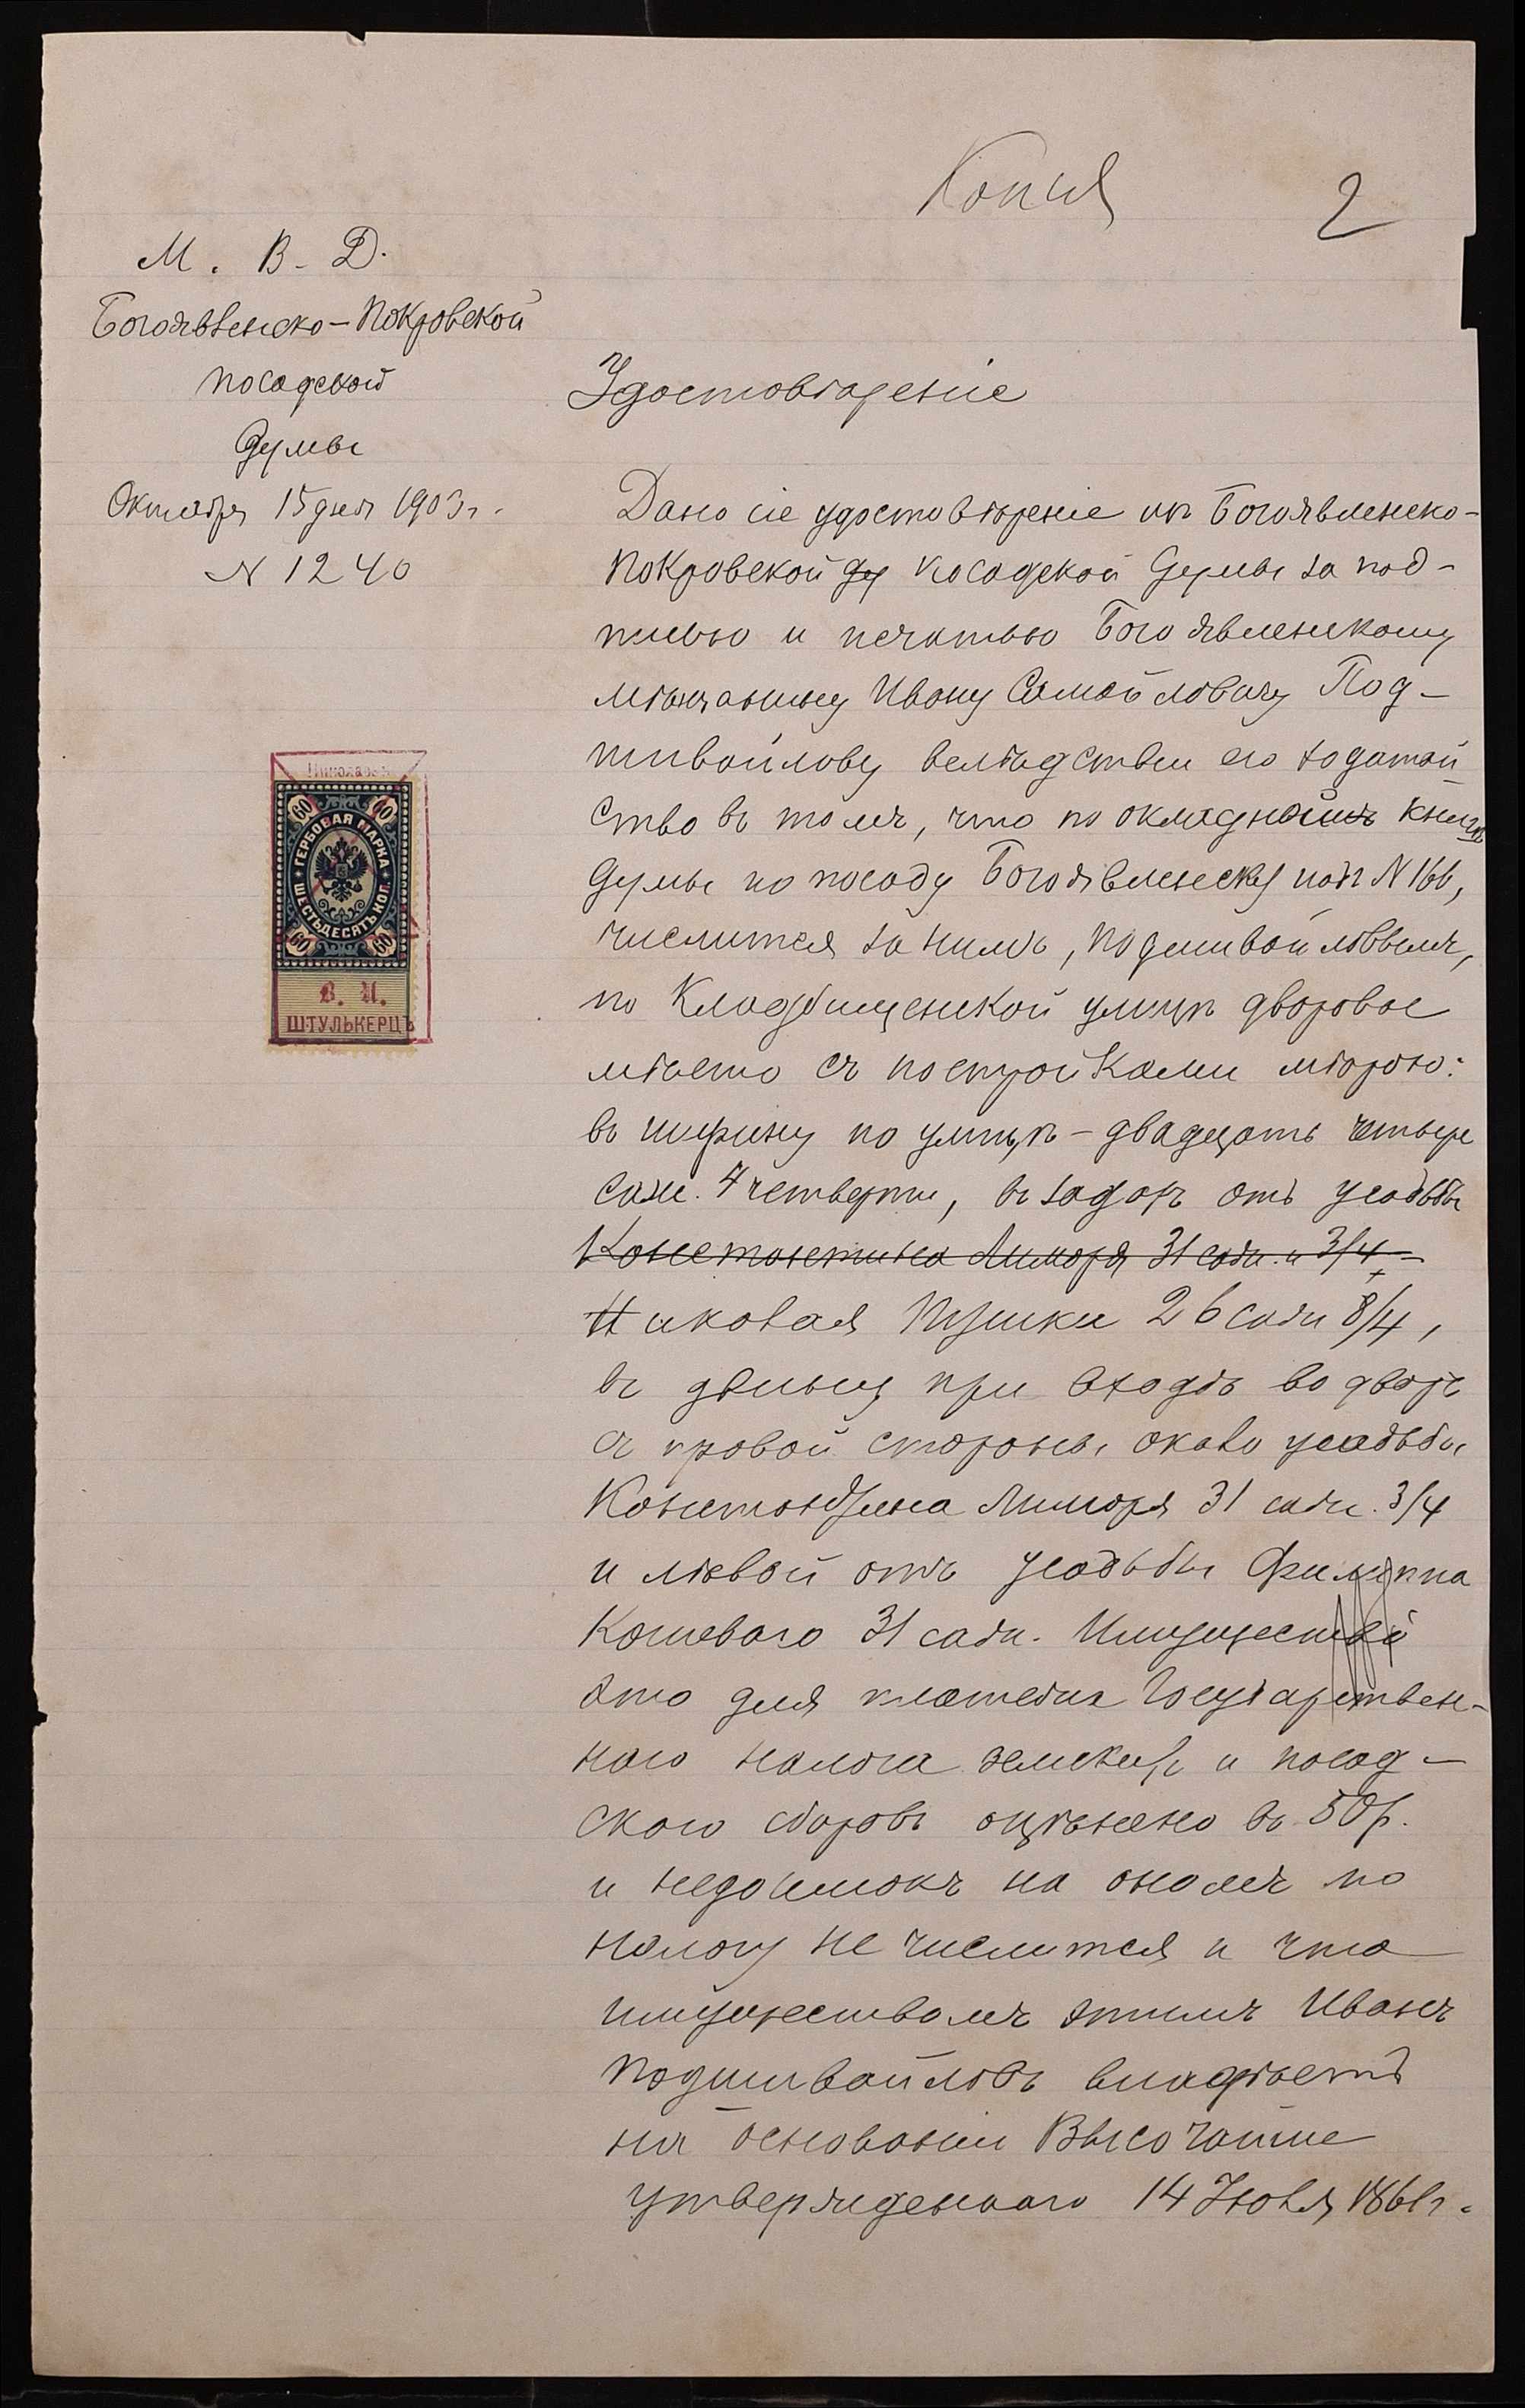 Копия
2
М. В. Д.
Богоявленско-Покровской
посадской
Думы
Октября 15 дня 1903 г.
N 1240
Удостовѣреніе
Дано сіе удостовѣреніе изъ Богоявленско-
Покровской ду посадской Думы за под-
писью и печатью Богоявленскому
мѣщанину Ивану Самойловичу Под-
шивайлову вслѣдствіи его ходатай
ство въ томъ, что по окладной книгѣ
Думы по посаду Богоявленску подъ N 166,
числится за нимъ, Подшивайловымъ,
по Кладбищенской улицѣ дворовое
мѣсто съ постройками мѣрою:
въ ширину по улицѣ - двадцать четыре
саж. 4 четверти, въ задахъ отъ усадьбы
Константина Лимаря 31 саж. и 3/4
Николая Пушки 26 саж 8/4,
въ длину при входѣ во дворъ
съ правой стороны около усадьбы
Константина Лимаря 31 саж. 3/4
и лѣвой отъ усадьбы Филиппа
Кошеваго 31 саж. Имущество
это для платежа Государствен-
наго налога земскихъ и посад-
скаго сборовъ оцѣнено въ 50 р.
и недоимокъ на ономъ по
налогу не числится и что
имуществомъ этимъ Иванъ
Подшивайловъ владѣетъ
на основаніи Высочайше
утвержденнаго 14 Іюля 1861 г.
Николаевъ
60 60
ГЕРБОВАЯ МАРКА
ШЕСТЬДЕСЯТЪ КОП.
60 60
В. И.
ШТУЛЬКЕРЦЪ